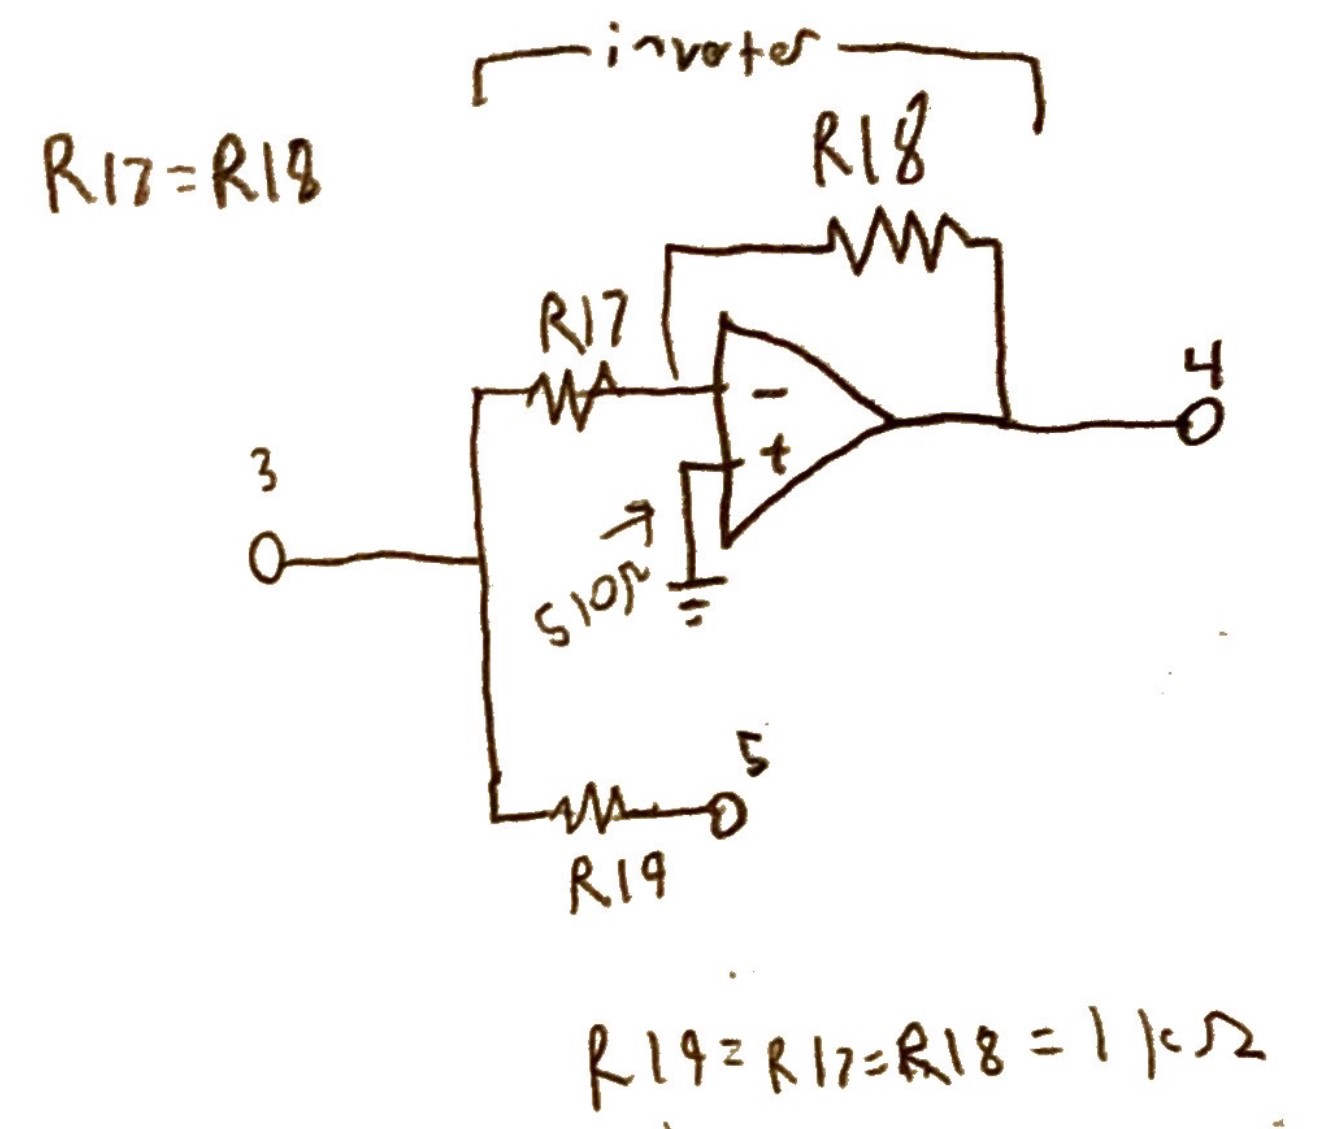 inverter
R18
R17=R18
R17
4
3
-
+
5
R19
R19=R17=R18=1kΩ